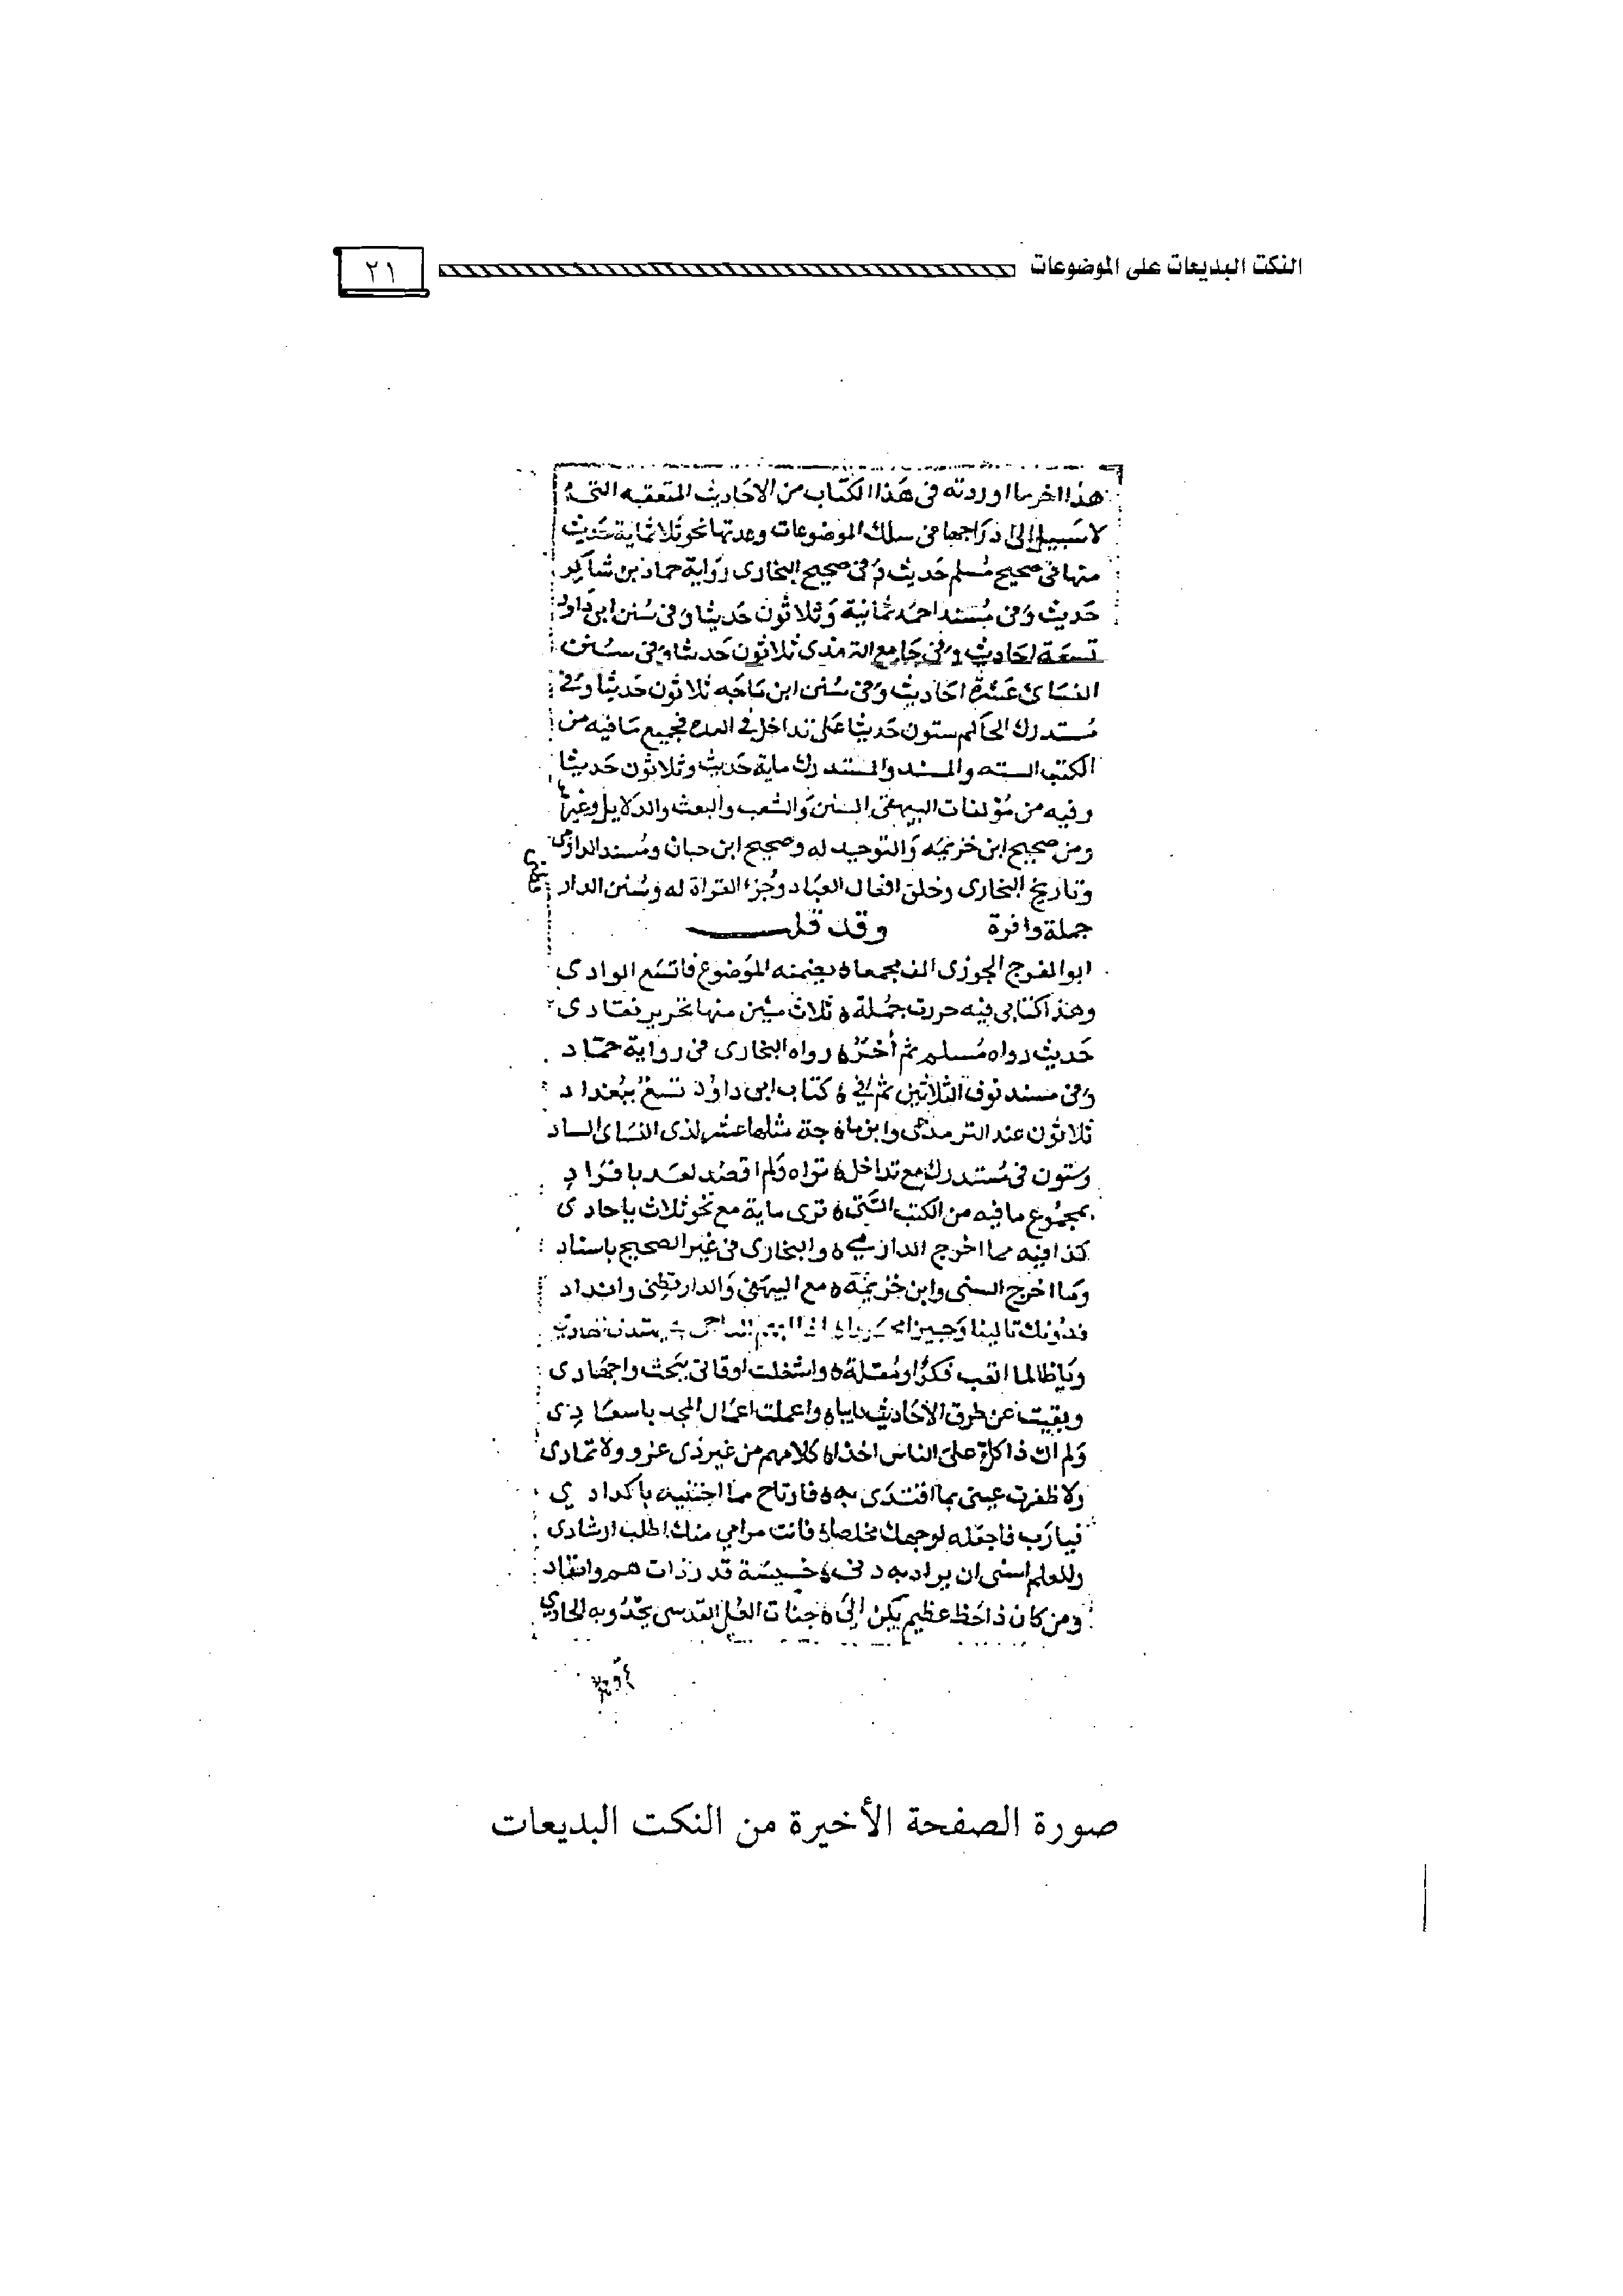 النكت البديعات على الموضوعات
٢١
هذا اخر ما اوردته فى هَذا الكتَاب من الاحَاديث المتعقبه التى
لا سَبيل إلى ادراجها فى سلك الموضوعات وعدتها نحو ثلاثماية حَديث
منها فى صحيح مُسلم حَديث وَفى صحيح البخارى رَواية حماد بن شاَكِر
حَديث وَفى مُسند احمد ثمانية وَثلاثون حَديثا وَفى سُنن ابى دَاود
تسعَة احَاديث وَفى جَامع الترمذى ثلاثون حَديثا وَفى سُنَن
النسَائ عَشرة احَاديث وَفى سُنن ابن مَاجَه ثلاثون حَديثا وَفى
مُستدرك الحاَكم ستون حَديثا عَلى تداخل فى العدد فجميع مَا فيه من
الكتب السته والمسند والمستدرك ماية حَديث وثلاثون حَديثا
وفيه من مُؤلفات البيهقى السنن وَالشعب والبعث والدلايل وغيرها
ومن صحيح ابن خزيمَه وَالتوحيد له وصحيح ابن حبان ومُسند الدارمى
وتاريخ البخارى وخلق افعال العبَاد وجُزء القراة له وسُنن الدار
جملة وافرة وقد قلـــت
ابو الفرج الجوزى الف مجمعا ه يضمنه الموَضوع فاتسَع الوادى
وهذا كتابى فيه حررت جُملة ه ثلاث مئين منها تحرير نقادى
حَديث رواه مُسلم ثم أخَرٌ ه رواه البخارى فى رواية حمَاد
وَفى مسند فوق الثلاثين ثم فى ه كتاب ابى داود تسعٌ بتعداد
ثلاثون عند الترمذى وابن ما ه جة مثلها عشر لذى النسَائ الساد
وَستون فى مُستدرك مع تداخل ه تراه وَلم اقصُد لعَد بافرَاد
بمجمُوع ما فيه من الكتب الستى ه ترى ماية مع نحو ثلاث ياحادى
كذا فيه مما اخرج الدارمى ه والبخارى فى غير الصحيح باسناد
وَمما اخرج السنى وابن خزيمَة ه مع البيهَقى وَالدارقطنى وانداد
فدُونك تاليفا وَجيزا
وَيَا ظالما اتعب فكرًا ومُقلة ه واشغلت اوقاتى ببَحث واجهَادى
وبقيت عن طرق الاحَاديث دايبا ه واعملت اعمَال المجد باسعَادِى
وَلم اك ذا كلّ على الناس اخذا ه كلامهم من غير ذى عزو ولا تمادى
ولا ظفرت عينى بما اقتدَى به ه فارتاح مما اجتنيه باكدادى
فيا رَب فاجعَله لوجهك مخلصا ه فانت مرامي منك اطلب ارشادى
وللعلم اسنى ان يراد به دنى ه خسيسَة قدر ذات هم وانفاد
ومن كان ذا حَظ عظيم يكن الى ه جنات العُلى القدسى يحدُو به الحادي
صورة الصفحة الأخيرة من النكت البديعات